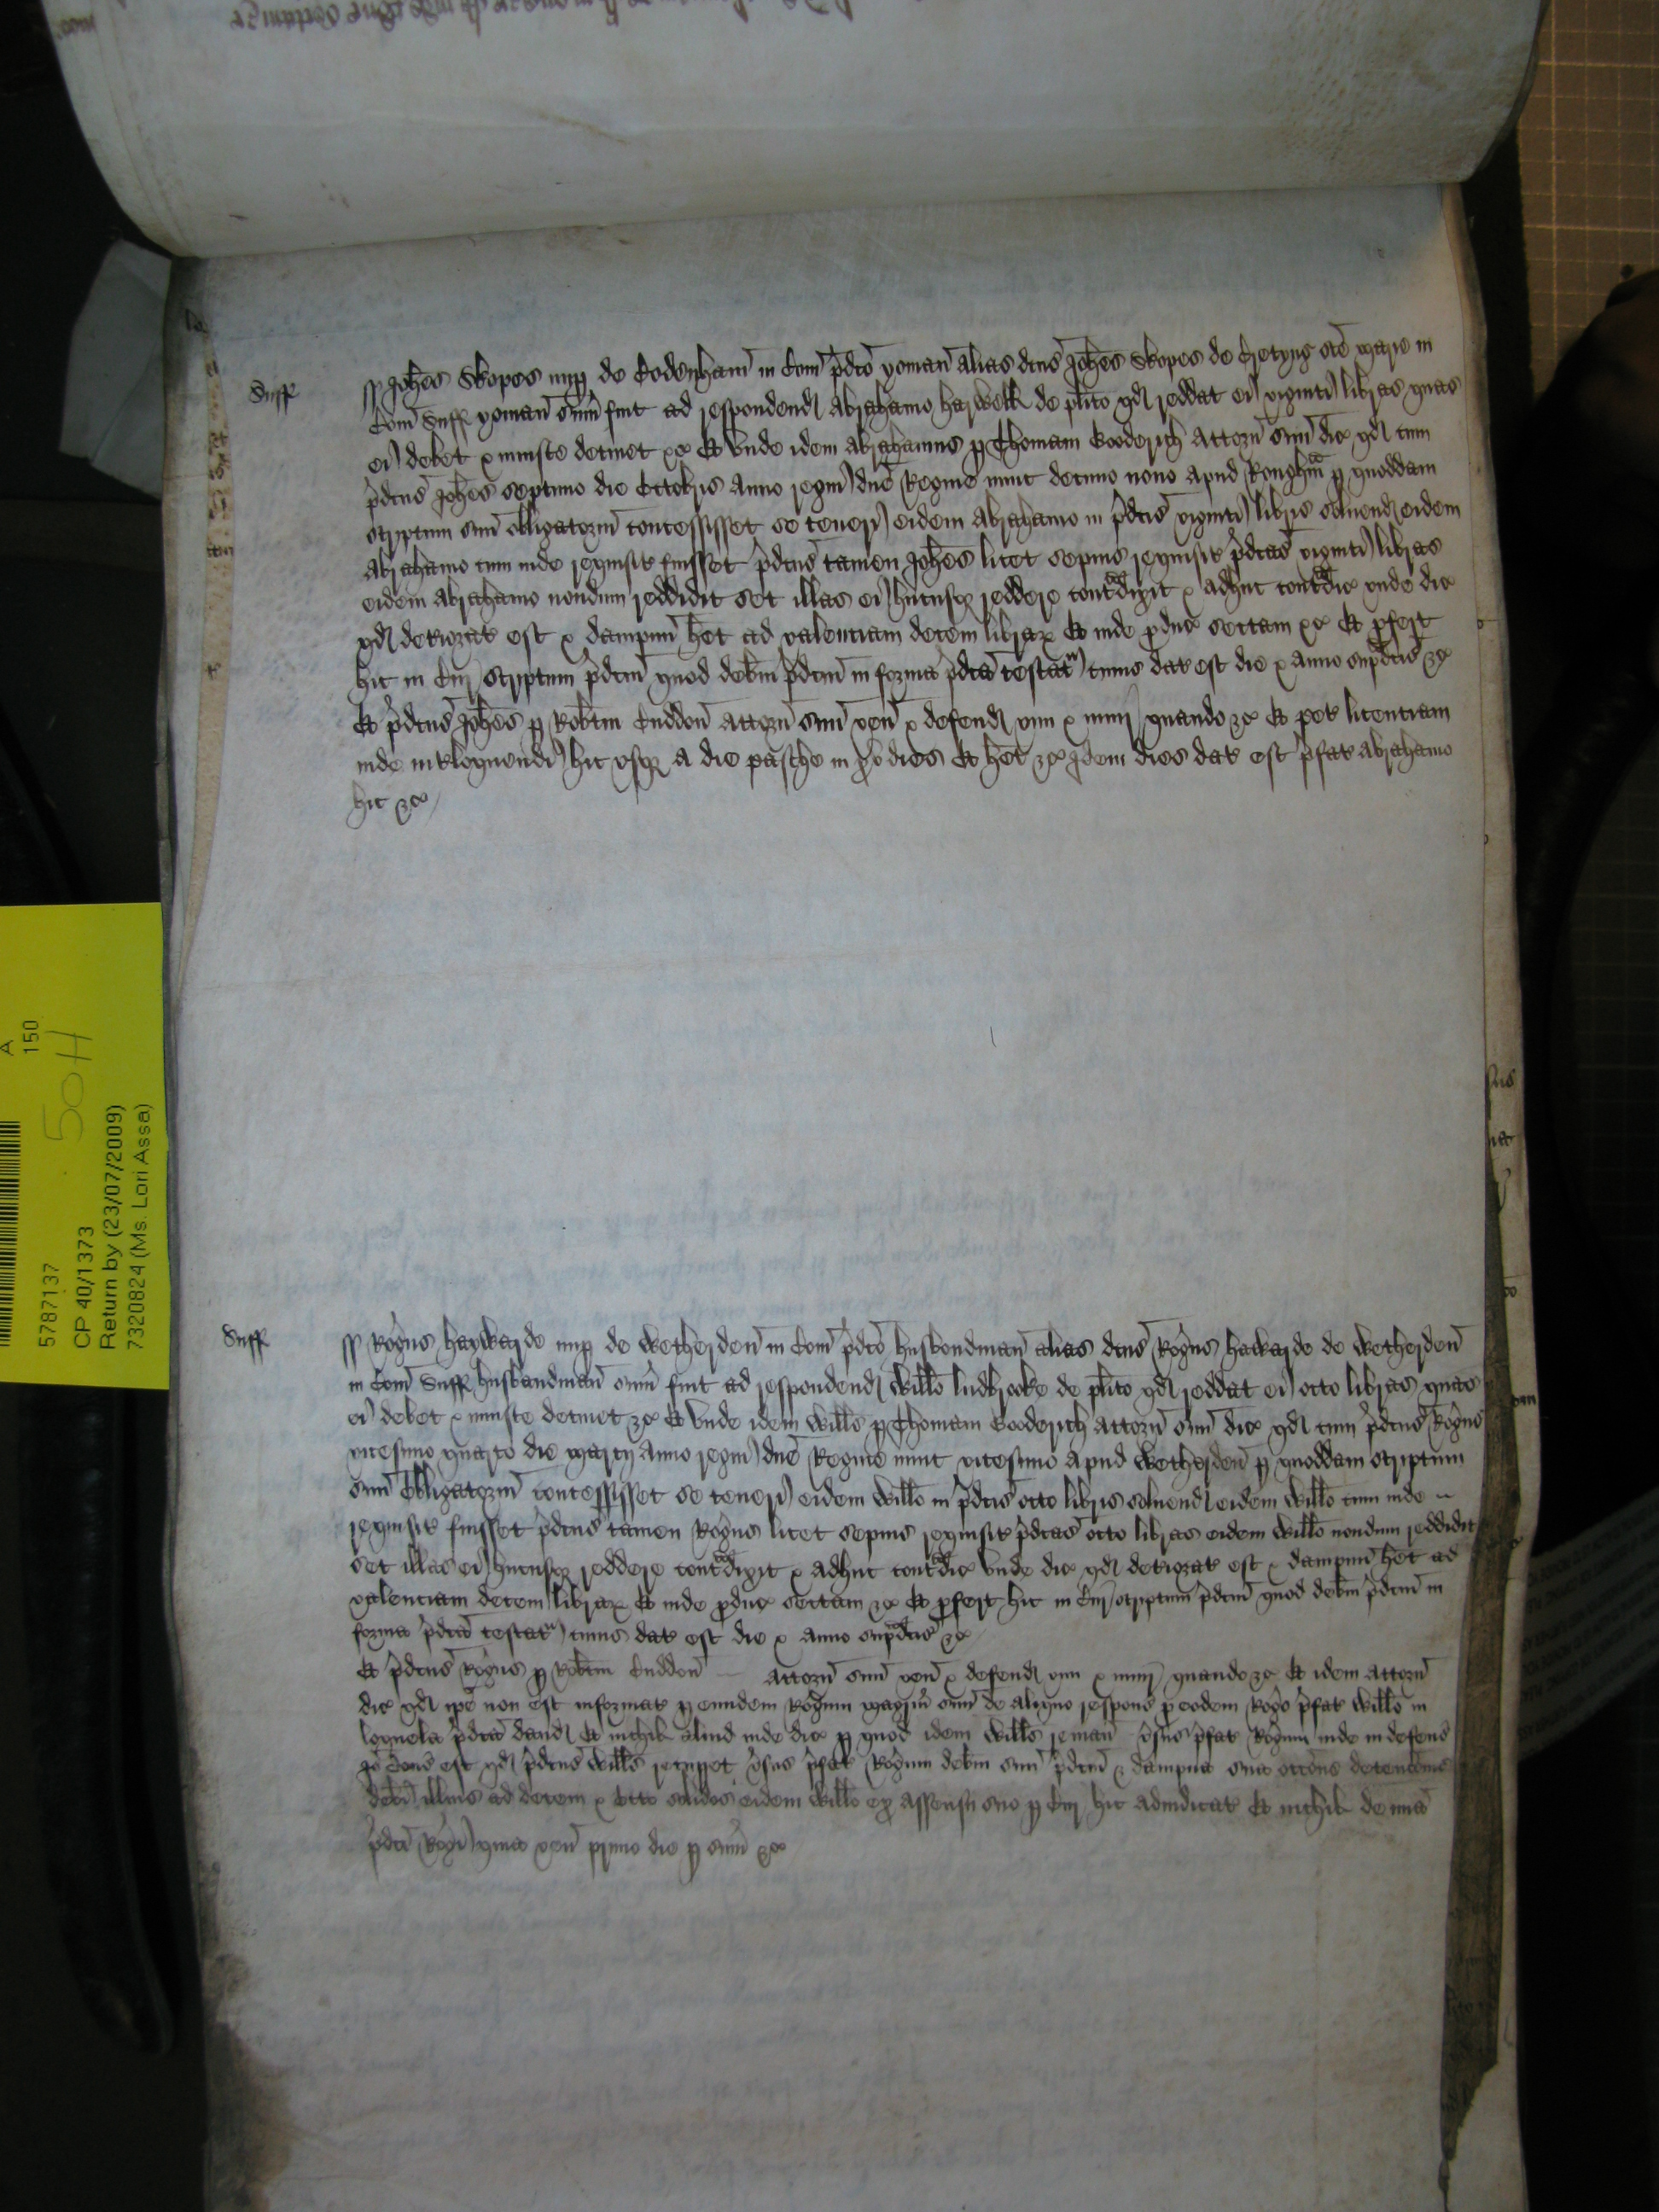 Suff
Joh̄es Skopes nup de Codenham̄ in Com̄ p̄dc̄o yoman̄ alias dc̄us Joh̄es Skopes de Cretyng sc̄e marie in
Com̄ Suff yoman̄ sum̄ fuit ad respondend Abrahamo harwell de pl̄ito qd reddat ei viginti libras quas
ei debet & iniuste detinet &c Et vnde idem Abrahamus p Thomam Gooderich Attorn̄ suu̅ dic qd cum
p̄dc̄us Joh̄es septimo die Octobris Anno regni dn̄e Regine nunc decimo nono apud Roughm̄ p quoddam
scriptum suu̅ obligatoriu̅ concessisset se teneri eidem Abrahamo in p̄dc̄is viginti libris solvend eidem
Abrahamo cum inde requisit fuisset p̄dc̄us tamen Joh̄es licet sepius requisit p̄dc̄as viginti libras
eidem Abrahamo nondum reddidit set illas ei hucusq reddere cont̃dixit & adhuc cont̃dic vnde dic
qd deteriorat est & dampnu̅ h̄et ad valenciam decem librar Et inde p̄duc sectam &c Et p̄fert
hic in Cur scriptum p̄dc̄m quod debm̄ p̄dc̄m in forma p̄dc̄a testat̃ cuius dat est die & anno sup̄dc̄is &c
Et p̄dc̄us Joh̄es p Rob̄tm Cuddon̄ Attorn̄ suu̅ ven̄ & defend vim & iniur quando &c Et pet licentiam
inde int̃loquendi hic vsq a die pasche in xv dies Et h̄et &c Idem dies dat est p̄fat Abrahamo
hic &c
Suff
Rog̃us haywarde nup de Wetherden̄ in Com̄ p̄dc̄o husbondman̄ alias dc̄us Rog̃us hawarde de Wetherden̄
in Com̄ Suff husbandman̄ sum̄ fuit ad respondend Will̄o ludbrooke de pl̄ito qd reddat ei octo libras quas
ei debet & iniuste detinet &c Et vnde idem Will̄s p Thomam Gooderich Attorn̄ suu̅ dic qd cum p̄dc̄us Rog̃us
vicesimo quarto die marcij Anno regni dn̄e Regine nunc vicesimo apud Wetherden̄ p quoddam scriptum
suu̅ Obligatoriu̅ concessisset se teneri eidem Will̄o in p̄dc̄is octo libris solvend eidem Will̄o cum inde
requisit fuisset p̄dc̄us tamen Rog̃us licet sepius requisit p̄dc̄as octo libras eidem Will̄o nondum reddidit
set illas ei hucusq reddere cont̃dixit & adhuc cont̃dic vnde dic qd deteriorat est & dampnu̅ h̄et ad
valenciam decem librar Et inde p̄duc sectam &c Et p̄fert hic in Cur scriptum p̄dc̄m quod debm̄ p̄dc̄m in
forma p̄dc̄a testat̃ cuius dat est die & anno sup̄dc̄is &c
Et p̄dc̄us Rog̃us p Rob̄tm Cuddon̄ Attorn̄ suu̅ ven̄ & defend vim & iniur quando &c Et idem Attorn̄
dic qd ip̄e non est informat p eundem Rog̃um magr̃m suu̅ de aliquo respons̄ p eodem Rog̃o p̄fat Will̄o in
loquela p̄dc̄a dand Et nichil aliud inde dic p quod idem Will̄s reman̄ v̄sus p̄fat Rog̃um inde indefens̄
Io Cons̄ est qd p̄dc̄us Will̄s recuperet v̄sus p̄fat Rog̃um debm̄ suu̅ p̄dc̄m & dampna sua occōne detencōnis
debi illius ad decem & octo solidos eidem Will̄o ex assensu suo p Cur hic adiudicat Et nichil de mīa
p̄dc̄i Rog̃i quia ven̄ primo die p sum̄ &c
A
150
50H
5787137
CP 40/1373
Return by (23/07/2009)
7320824 (Ms. Lori Assa)